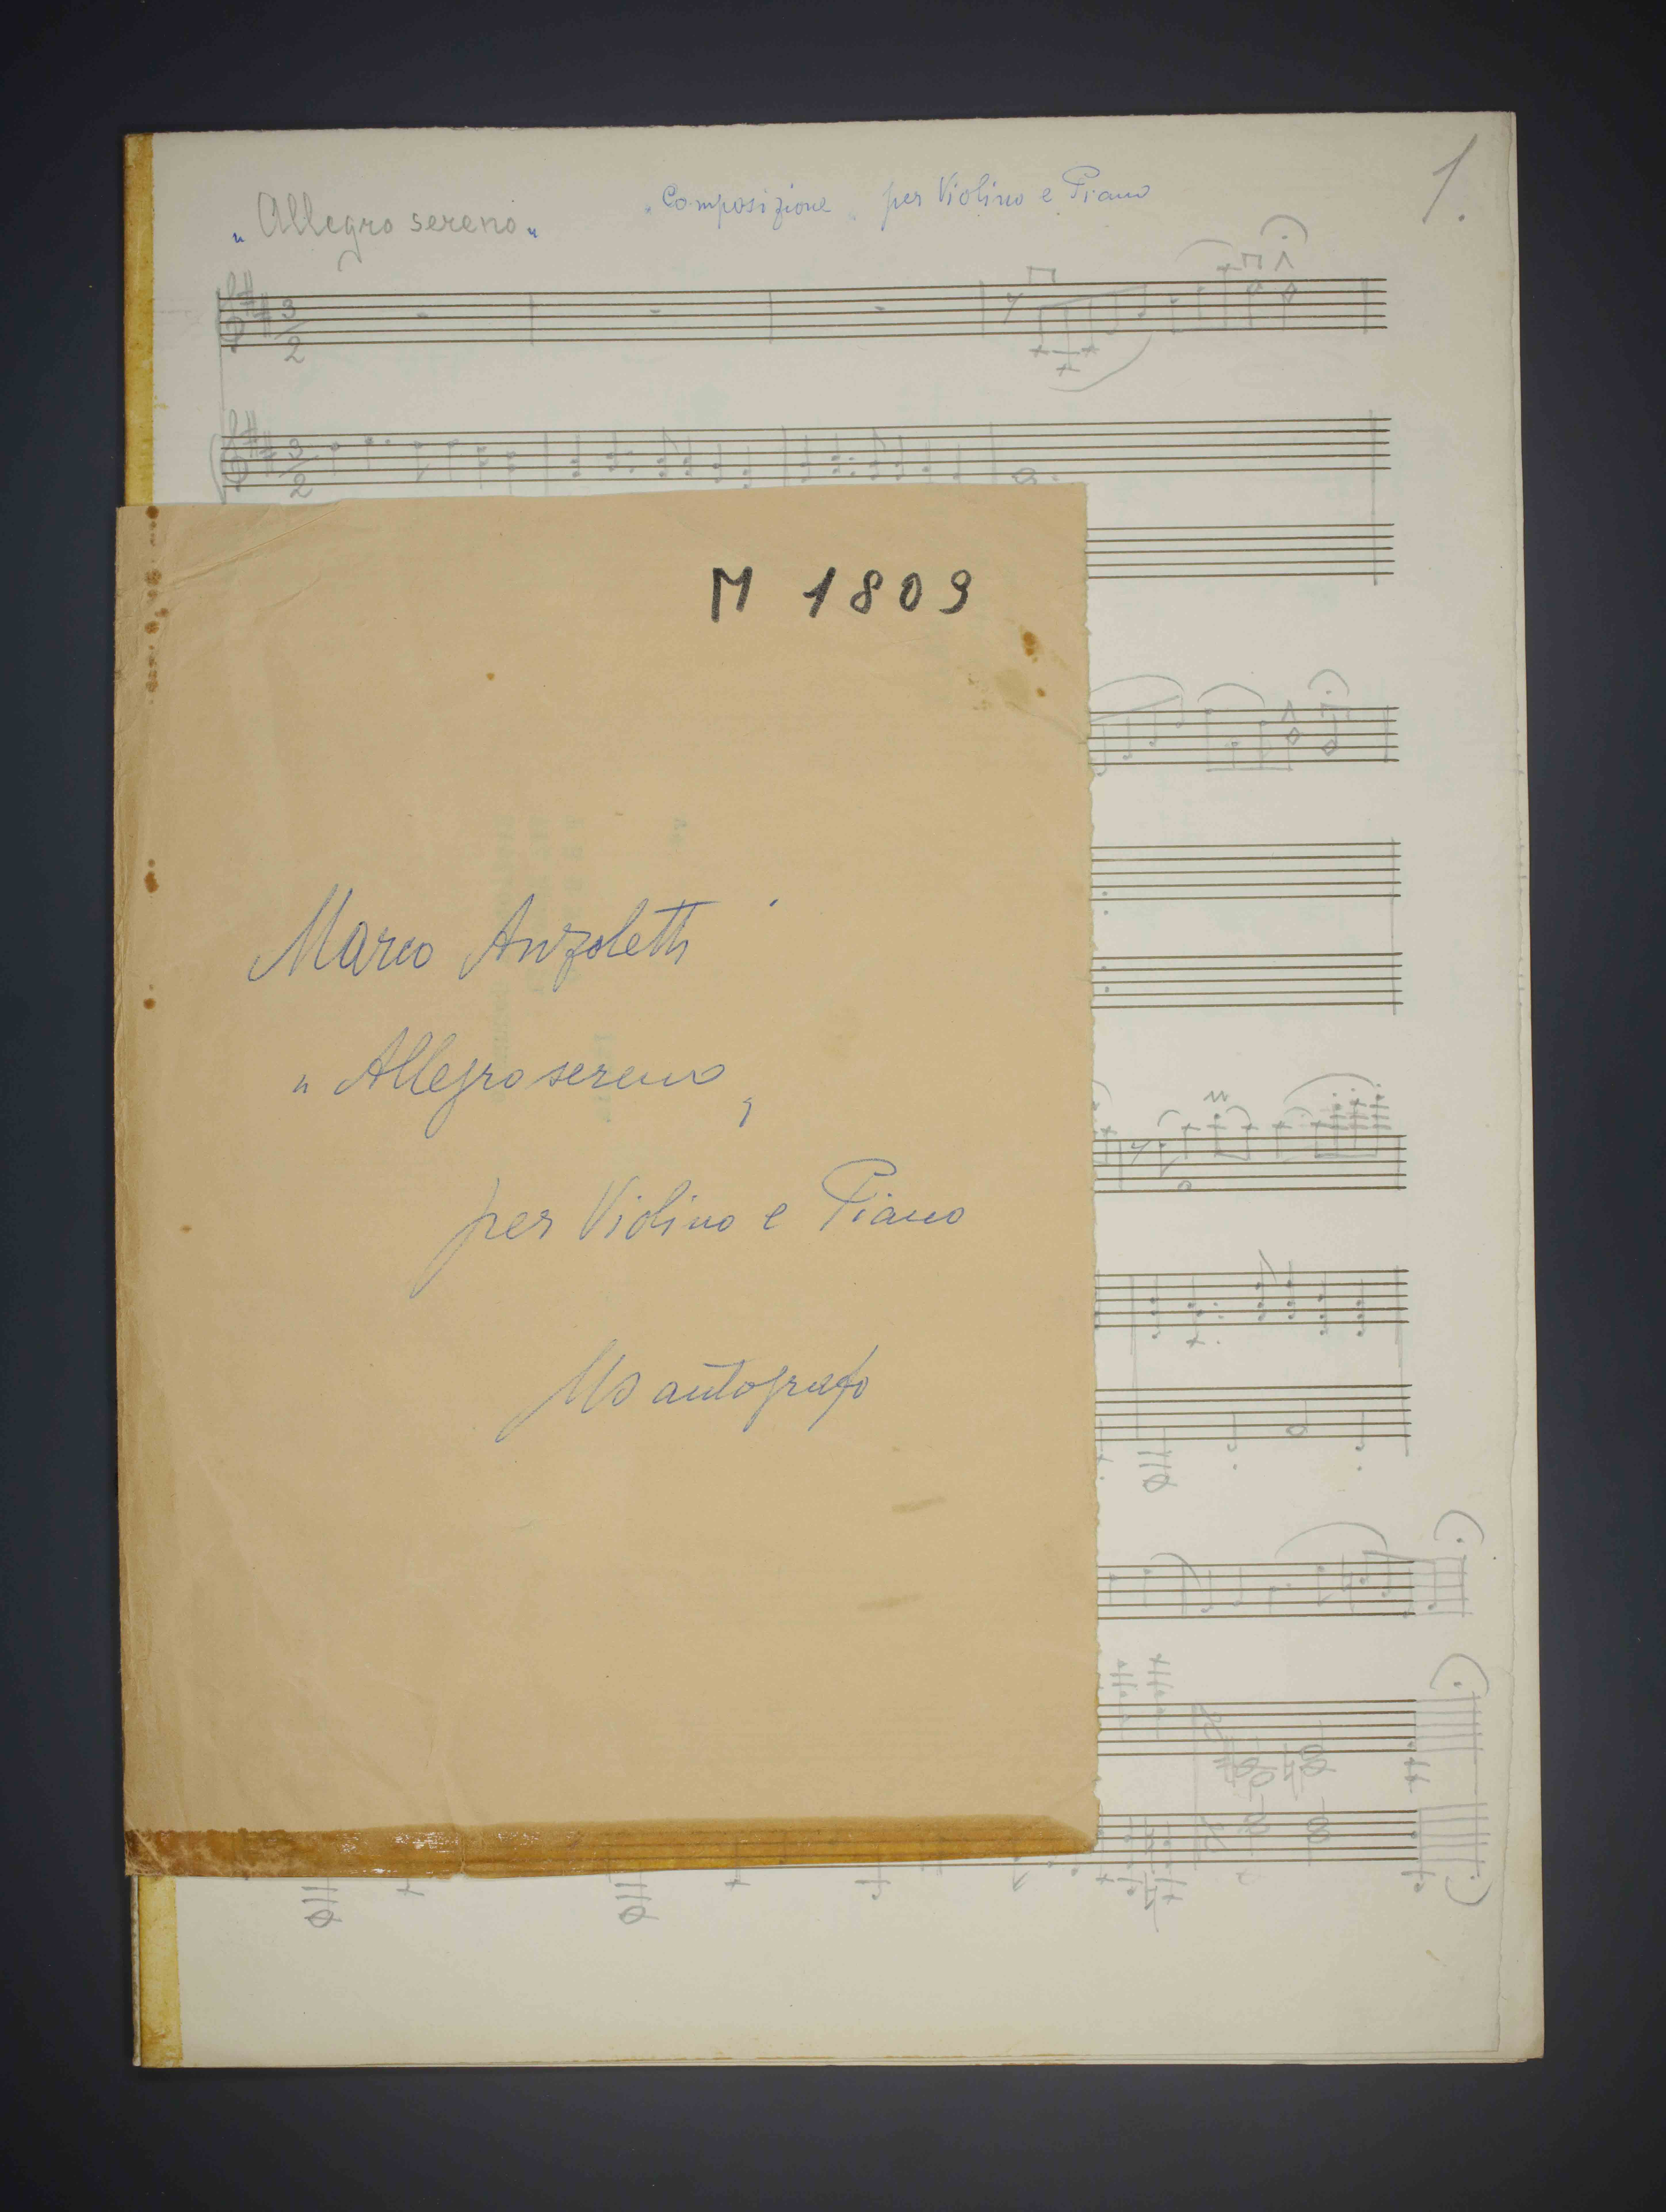 1.
„Composizione„ per Violino e Piano
„Allegro sereno„
3
2
3
2
M 1809
Marco Anzoletti
„Allegro sereno„
per Violino e Piano
Ms autografo